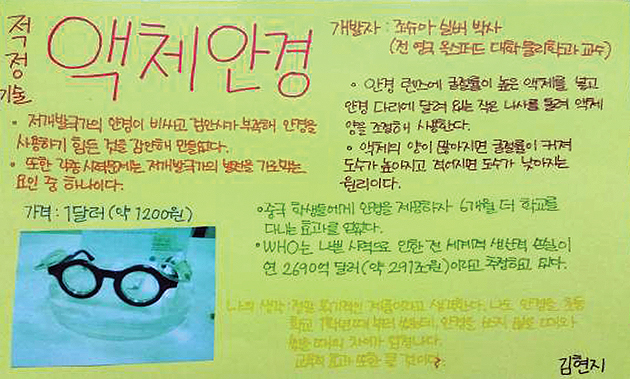 적정
기술
액체안경
개발자 : 조슈아 실버 박사
(전 영국 옥스퍼드 대학 물리학과 교수)
• 저개발국가의 안경이 비싸고 검안사가 부족해 안경을
사용하기 힘든 것을 감안해 만들었다.
• 또한 각종 시력문제는 저개발국가의 발전을 가로막는
요인 중 하나이다.
• 안경 렌즈에 굴절률이 높은 액체를 넣고
안경 다리에 달려 있는 작은 나사를 돌려 액체
양을 조절해 사용한다.
• 액체의 양이 많아지면 굴절률이 커져
도수가 높아지고 적어지면 도수가 낮아지는
원리이다.
가격 : 1달러 (약 1200원)
• 중국 학생들에게 안경을 제공하자 6개월 더 학교를
다니는 효과를 얻었다.
• WHO는 나쁜 시력으로 인한 전 세계적 생산성 손실이
연 2690억 달러(약 291조원)이라고 추정하고 있다.
나의 생각 : 정말 획기적인 제품이라고 생각한다. 나도 안경을 초등
학교 1학년때 부터 썼는데, 안경을 쓰지 않았을 때와
썼을 때의 차이가 엄청나다.
교육적 효과 또한 클 것이다.
김현지